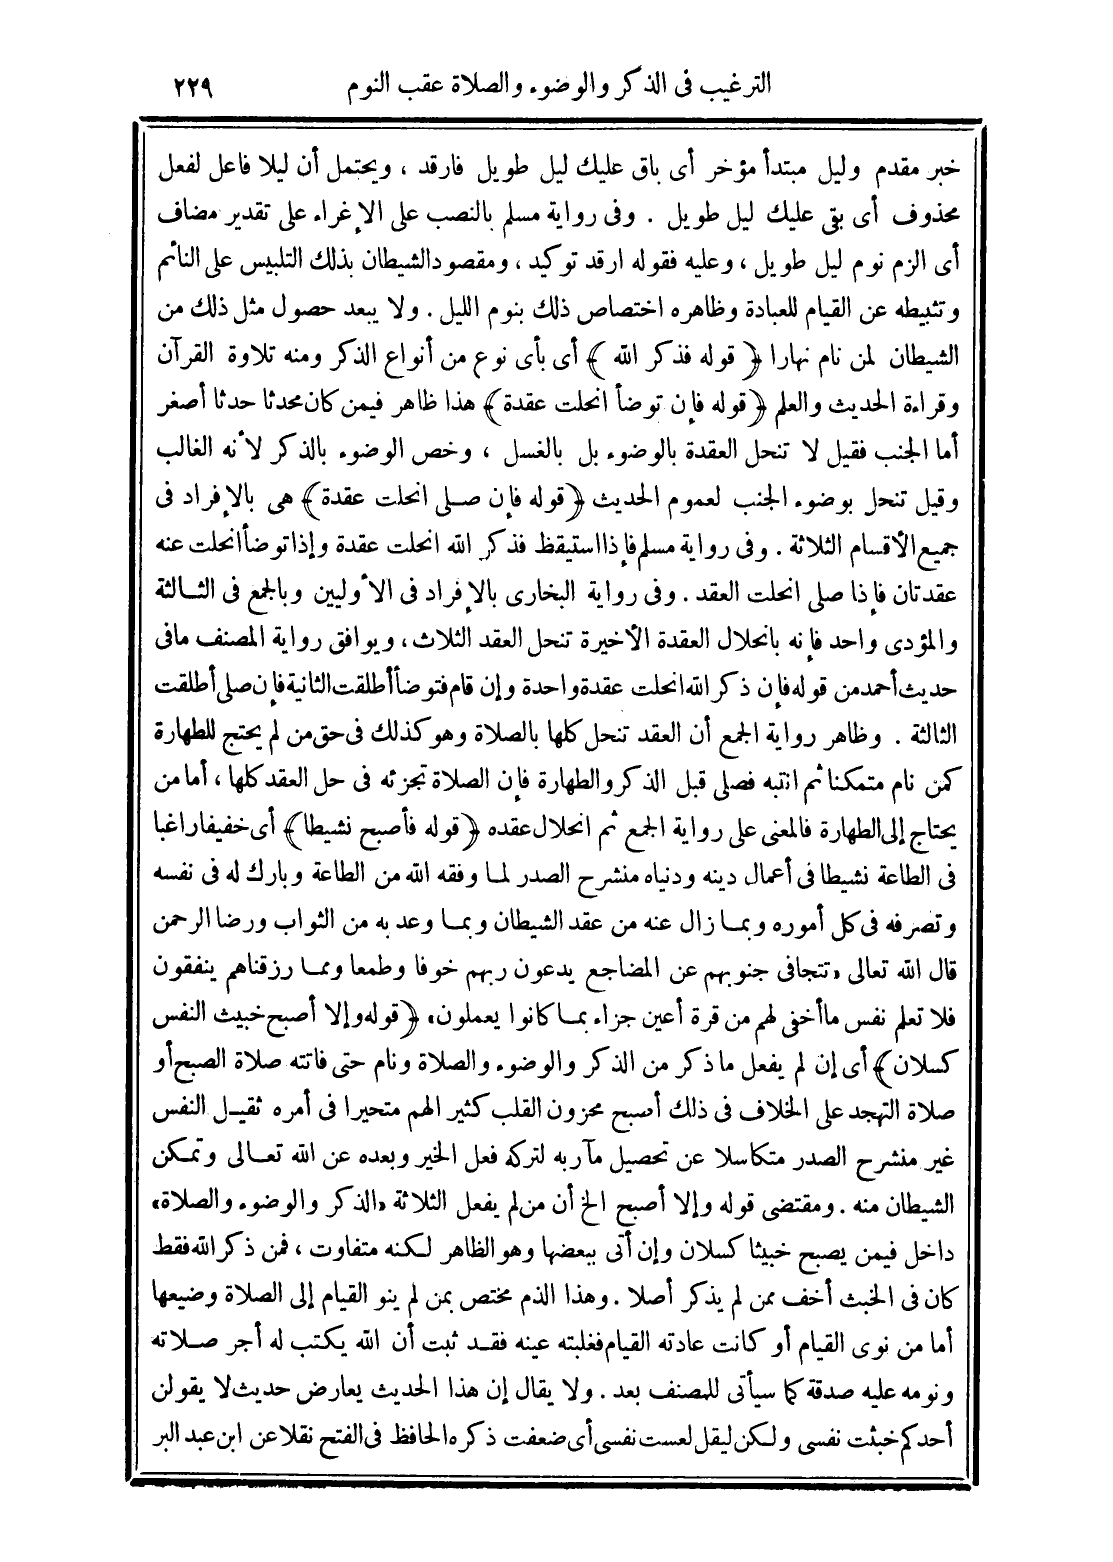 الترغيب فى الذكر والوضوء والصلاة عقب النوم ٢٢٩
خبر مقدم وليل مبتدأ مؤخر أى باق عليك ليل طويل فارقد ، ويحتمل أن ليلا فاعل لفعل
محذوف أى بقى عليك ليل طويل . وفى رواية مسلم بالنصب على الإغراء على تقدير مضاف
أى الزم نوم ليل طويل ، وعليه فقوله ارقد توكيد ، ومقصود الشيطان بذلك التلبيس على النائم
وتثبيطه عن القيام للعبادة وظاهره اختصاص ذلك بنوم الليل . ولا يبعد حصول مثل ذلك من
الشيطان لمن نام نهارا ﴿ قوله فذكر الله ﴾ أى بأى نوع من أنواع الذكر ومنه تلاوة القرآن
وقراءة الحديث والعلم ﴿قوله فإن توضأ انحلت عقدة﴾ هذا ظاهر فيمن كان محدثا حدثا أصغر
أما الجنب فقيل لا تنحل العقدة بالوضوء بل بالغسل ، وخص الوضوء بالذكر لأنه الغالب
وقيل تنحل بوضوء الجنب لعموم الحديث ﴿قوله فإن صلى انحلت عقدة﴾ هى بالإفراد فى
جميع الأقسام الثلاثة . وفى رواية مسلم فإذا استيقظ فذكر الله انحلت عقدة وإذا توضأ انحلت عنه
عقدتان فإذا صلى انحلت العقد . وفى رواية البخارى بالإفراد فى الأوليين وبالجمع فى الثالثة
والمؤدى واحد فإنه بانحلال العقدة الأخيرة تنحل العقد الثلاث ، ويوافق رواية المصنف مافى
حديث أحمد من قوله فإن ذكر الله انحلت عقدة واحدة وإن قام فتوضأ أطلقت الثانية فإن صلى أطلقت
الثالثة . وظاهر رواية الجمع أن العقد تنحل كلها بالصلاة وهو كذلك فى حق من لم يحتج للطهارة
كمن نام متمكنا ثم انتبه فصلى قبل الذكر والطهارة فإن الصلاة تجزئه فى حل العقد كلها ، أما من
يحتاج إلى الطهارة فالمعنى على رواية الجمع ثم انحلال عقده ﴿قوله فأصبح نشيطا﴾ أى خفيفا راغبا
فى الطاعة نشيطا فى أعمال دينه ودنياه منشرح الصدر لما وفقه الله من الطاعة وبارك له فى نفسه
وتصرفه فى كل أموره وبما زال عنه من عقد الشيطان وبما وعد به من الثواب ورضا الرحمن
قال الله تعالى «تتجافى جنوبهم عن المضاجع يدعون ربهم خوفا وطمعا ومما رزقناهم ينفقون
فلا تعلم نفس ماأخفى لهم من قرة أعين جزاء بما كانوا يعملون» ﴿قوله وإلا أصبح خبيث النفس
كسلان﴾ أى إن لم يفعل ماذكر من الذكر والوضوء والصلاة ونام حتى فاتته صلاة الصبح أو
صلاة التهجد على الخلاف فى ذلك أصبح محزون القلب كثير الهم متحيرا فى أمره ثقيل النفس
غير منشرح الصدر متكاسلا عن تحصيل مآربه لتركه فعل الخير وبعده عن الله تعالى وتمكن
الشيطان منه . ومقتضى قوله وإلا أصبح الخ أن من لم يفعل الثلاثة «الذكر والوضوء والصلاة»
داخل فيمن يصبح خبيثا كسلان وإن أتى ببعضها وهو الظاهر لكنه متفاوت ، فمن ذكر الله فقط
كان فى الخبث أخف ممن لم يذكر أصلا . وهذا الذم مختص بمن لم ينو القيام إلى الصلاة وضيعها
أما من نوى القيام أو كانت عادته القيام فغلبته عينه فقد ثبت أن الله يكتب له أجر صلاته
ونومه عليه صدقة كما سيأتى للمصنف بعد . ولا يقال إن هذا الحديث يعارض حديث لا يقولن
أحدكم خبثت نفسى ولكن ليقل لعست نفسى أى ضعفت ذكره الحافظ فى الفتح نقلا عن ابن عبد البر